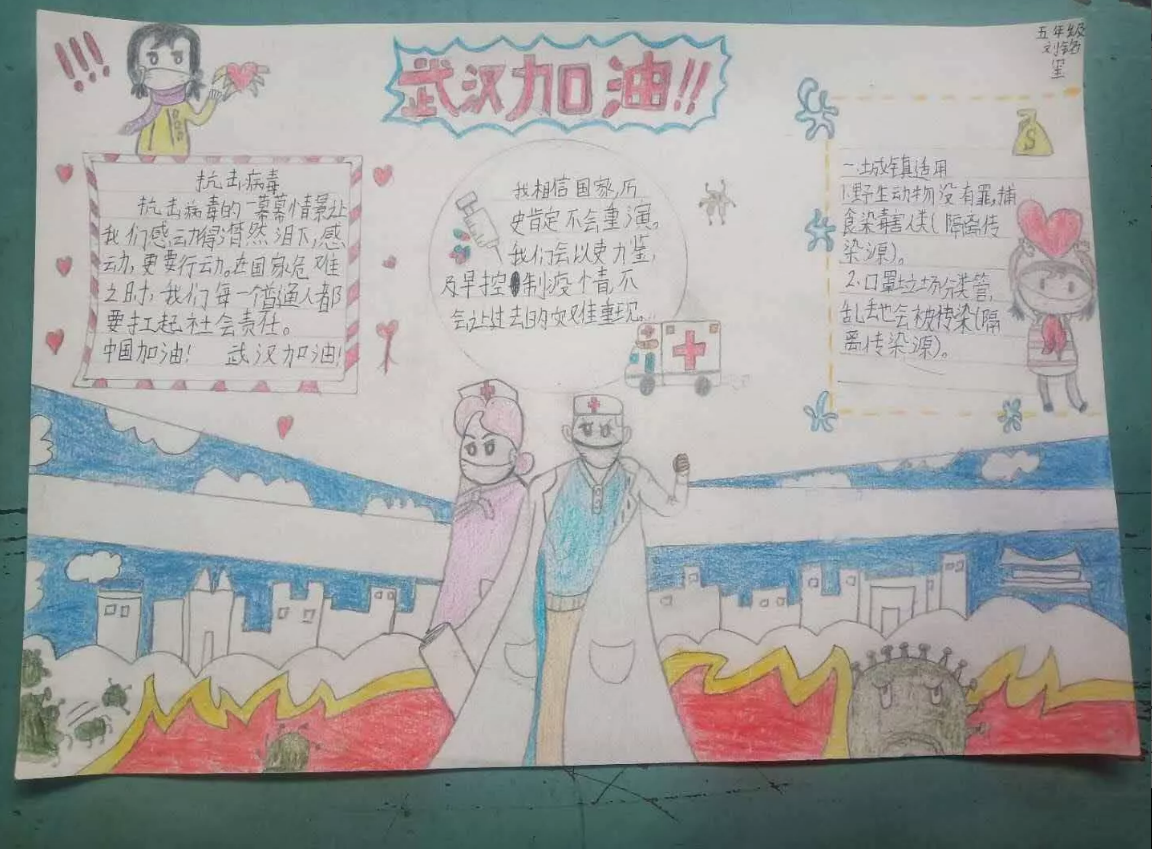 武汉加油!!
五年级
!!!
抗击病毒
抗击病毒的一幕幕情景让
我们感动得潸然泪下,感
动,更要行动。在国家危难
之时,我们每一个普通人都
要扛起社会责任。
中国加油! 武汉加油!
我相信国家,历
史肯定不会重演。
我们会以史为鉴,
及早控制疫情不
会让过去的灾难重现。
一.城镇适用
1.野生动物没有罪,捕
食染毒害人类(隔离传
染源)。
2.口罩垃圾分类管,
乱丢也会被传染(隔
离传染源)。
$